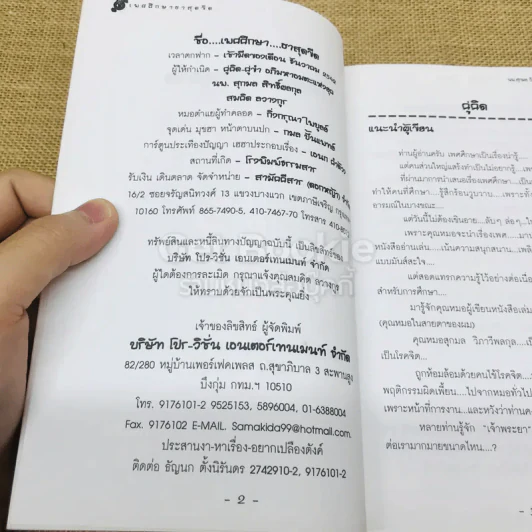 เพศศึกษาฮาสุดจีด
ชื่อ....เพศศึกษา....ฮาสุดจีด
เวลาตกฟาก – เช้ามืดของเดือน ธันวาคม
ผู้ให้กำเนิด –
นพ. สุกมล
สมจิต ลวางกูร
หมอตำแยผู้ทำคลอด –
จุดเด่น มุขฮา หน้าตาบนปก – กมล
การ์ตูนประเทืองปัญญา เฮฮาประกอบเรื่อง – เอนก
สถานที่เกิด –
รับเงิน เดินตลาด จัดจำหน่าย – สามัคคีสาร (ดอกหญ้า) จำกัด
16/2 ซอยจรัญสนิทวงศ์ 13 แขวงบางแวก เขตภาษีเจริญ
10160 โทรศัพท์ 865-7490-5, 410-7467-70 โทรสาร
ทรัพย์สินและหนี้สินทางปัญญาฉบับนี้ เป็นลิขสิทธิ์ของ
บริษัท โปร-วิชั่น เอนเตอร์เทนเมนท์ จำกัด
ผู้ใดต้องการละเมิด กรุณาแจ้งคุณสมจิต ลวางกูร
ให้ทราบด้วยจักเป็นพระคุณยิ่ง
เจ้าของลิขสิทธ์ ผู้จัดพิมพ์
บริษัท โปร-วิชั่น เอนเตอร์เทนเมนท์ จำกัด
82/280 หมู่บ้านเพอร์เฟคเพลส ถ.สุขาภิบาล 3 สะพานสูง
บึงกุ่ม กทม.ฯ 10510
โทร. 9176101-2 9525153, 5896004, 01-6388004
Fax. 9176102 E-MAIL. Samakida99@hotmail.com
ประสานงา-หาเรื่อง-อยากเปลืองตังค์
ติดต่อ ธัญนก ตั้งนิรันดร 2742910-2, 9176101-2
- 2 -
ผู้ผิด
แนะนำผู้เขียน
ท่านผู้อ่านครับ เพศศึกษาเป็นเรื่องน่ารู้...
แต่คนส่วนใหญ่แสร้งทำเป็นไม่อยากรู้...
ที่ผ่านมาการนำเสนอเรื่องเพศศึกษา...
ทำให้คนที่ศึกษา...รู้สึกร้อนวูบวาบ...
อารมณ์ในบางขณะ...
แต่วันนี้ไม่ต้องเขินอาย...
เพราะคุณหมอจะนำเรื่องเพศ...
หนังสืออ่านเล่น...เน้นความสนุกสนาน...
แบบมันส์สะใจ...
และสอดแทรกความรู้ไว้อย่างต่อเนื่อง
สำหรับการศึกษา...
มารู้จักคุณหมอผู้เขียนหนังสือเล่ม
(คุณหมอในสายตาของผม)
คุณหมอสุกมล วิภาวีพลกุล...
เป็นโรคจิต...
ถูกห้อมล้อมด้วยคนไข้โรคจิต...
พฤติกรรมผิดเพี้ยน...ไปจากหมอทั่วไป
เพราะหน้าที่การงาน...และหวังว่าท่าน
หลายท่านรู้จัก "เจ้าพระยา"
ต่อเรามากมายขนาดไหน....?